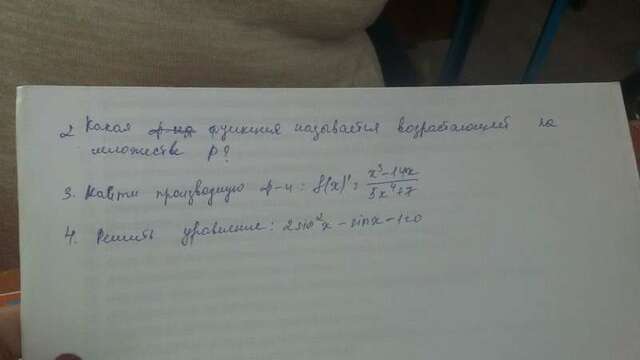 2 Какая функция называется возрастающей на
множестве P?
3. Найти производную ф-и: f(x)' = x³-14x / 3x⁴+7
4. Решить уравнение: 2sin²x - sinx - 1=0